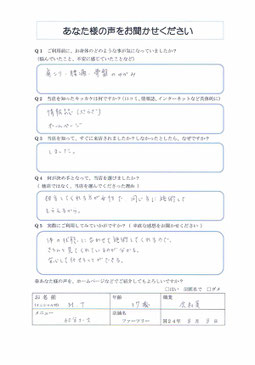 あなた様の声をお聞かせください
Q1 ご利用前に、お身体のどのような事が気になっていましたか?
(悩んでいたこと、不安に感じていたことなど)
肩こり・腰痛・骨盤
Q2 当店を知ったキッカケは何ですか?(口コミ、情報誌、インターネットなど具体的に)
情報誌
ホームページ
Q3 当店を知って、すぐに来店されましたか?しなかったとしたら、なぜですか?
しました。
Q4 何が決め手となって、当店を選びましたか?
(他店ではなく、当店を選んでくださった理由)
担当してくれる方が女性で、同じ方に施術して
もらえるから。
Q5 実際にご利用してみていかがですか?(率直な感想をお聞かせください)
体の状態に合わせて施術してくれるので、
きちんと見てくれているのが分かる。
安心して任せることができる。
※あなた様の声を、ホームページなどでご紹介してもよろしいですか?
□はい □匿名で □ダメ
お名前
年齢
職業
メニュー
店舗名
ファーマリー